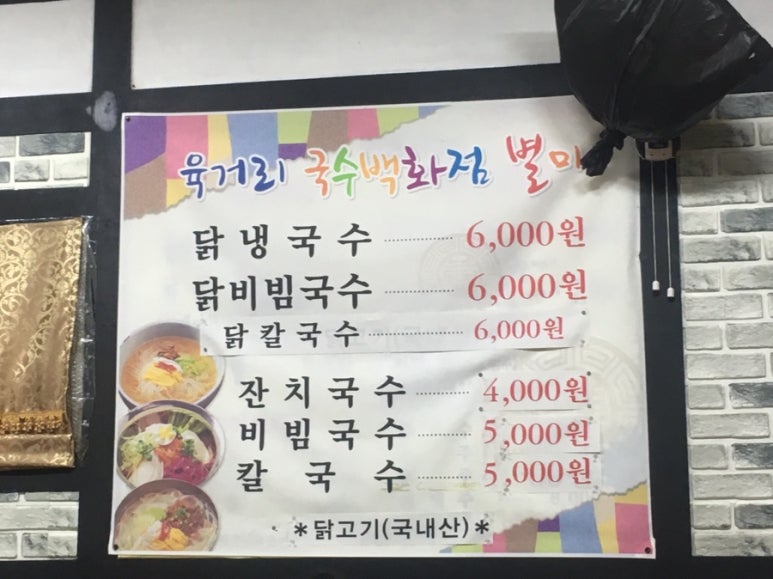 육거리 국수백화점 별미
닭냉국수 6,000원
닭비빔국수 6,000원
닭칼국수 6,000원
잔치국수 4,000원
비빔국수 5,000원
칼국수 5,000원
*닭고기(국내산)*